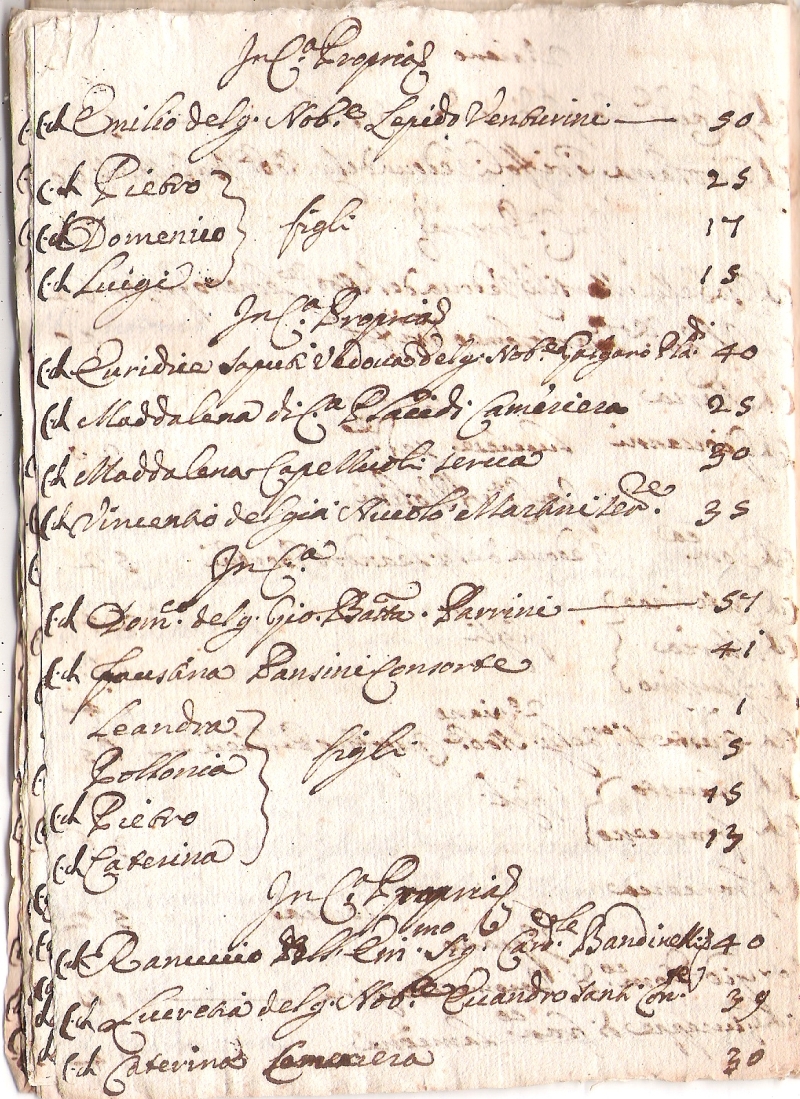 In C.a Propria
C. ch Emilio del q. Nob.e Lepido Venturini — 50
C. ch Pietro 25
C. ch Domenico } figli 17
C. ch Luigi 15
In C.a Propria
C. ch Euridice vedova del q. Nob.e 40
C. ch Maddalena di C.a Placidi Cameriera 25
C. ch Maddalena Capelluoli serva 30
C. ch Vincenzo del già Niccolò Martini ser.re 35
In C.a
C. ch Dom.co del q. Gio. Batta. Parrini — 57
C. ch Faustina Pansini Consorte 41
Leandra 1
Pollonia } figli 5
C. ch Pietro 15
C. ch Caterina 13
In C.a Propria
C. ch Ranuccio Em.mo Sig. Card.le Bandinelli 40
C. ch Lucretia del q. Nob.e Evandro Santi Con.te 39
C. ch Caterina Cameriera 30